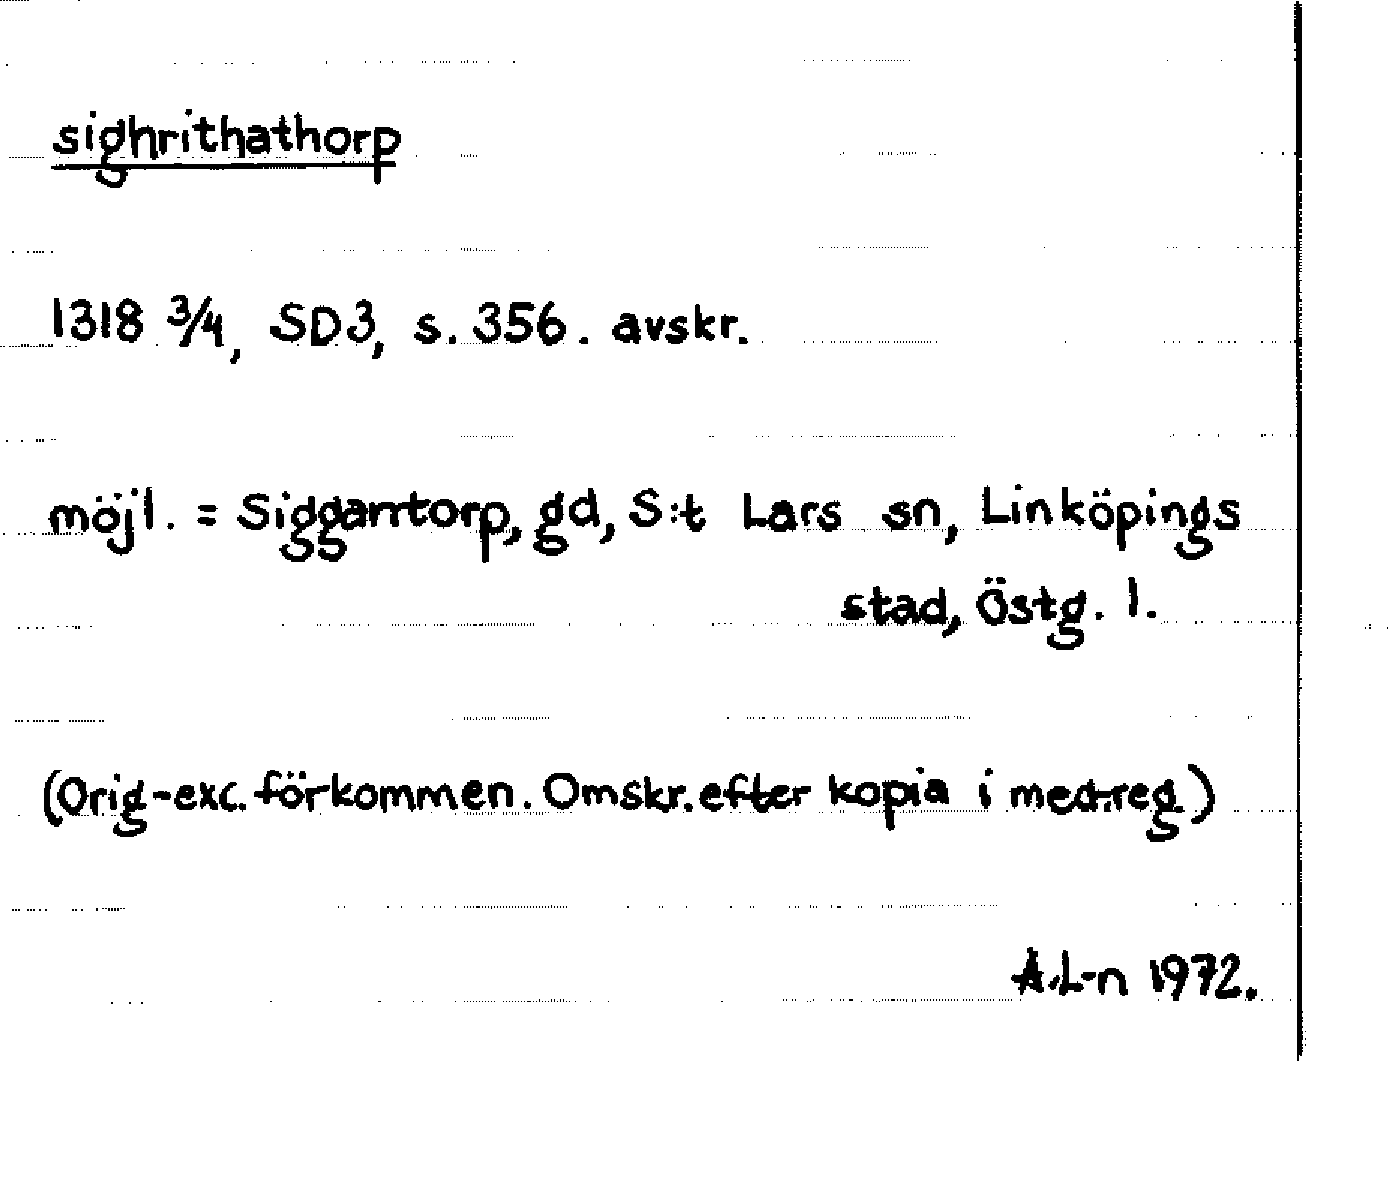 sighrithathorp
1318 3/4, SD3, s. 356. avskr.
möjl. = Siggantorp, gd, S:t Lars sn, Linköpings
stad, Östg. l.
(Orig-exc. förkommen. Omskr. efter kopia i med.reg.)
A.L-n 1972.